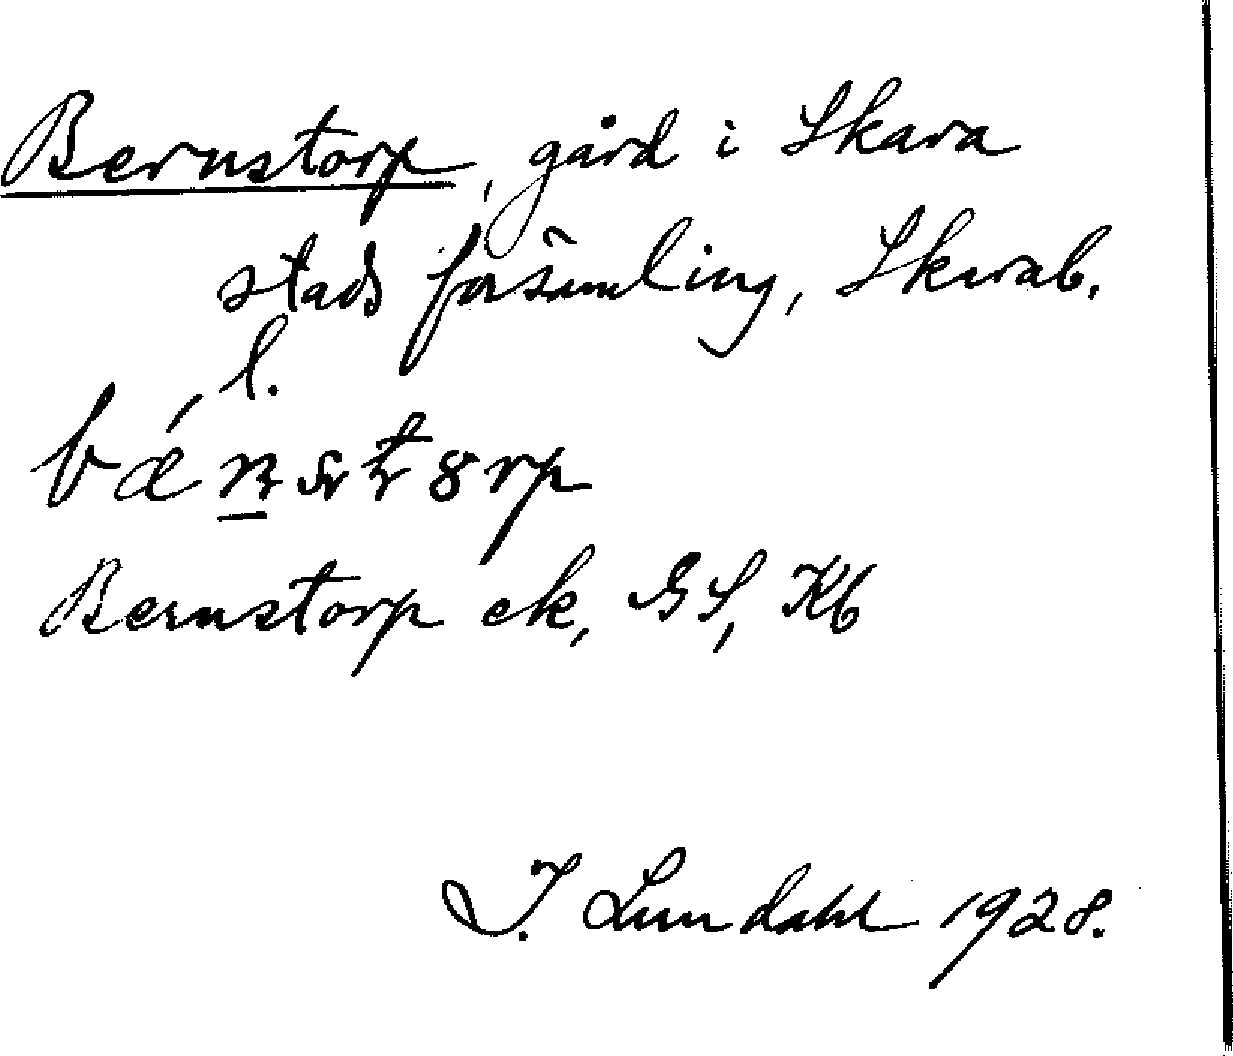 Bernstorp, gård i Skara
stads församling, Skarab.
l.
Bernstorp ek, GS, Kb
I. Lundahl 1928.